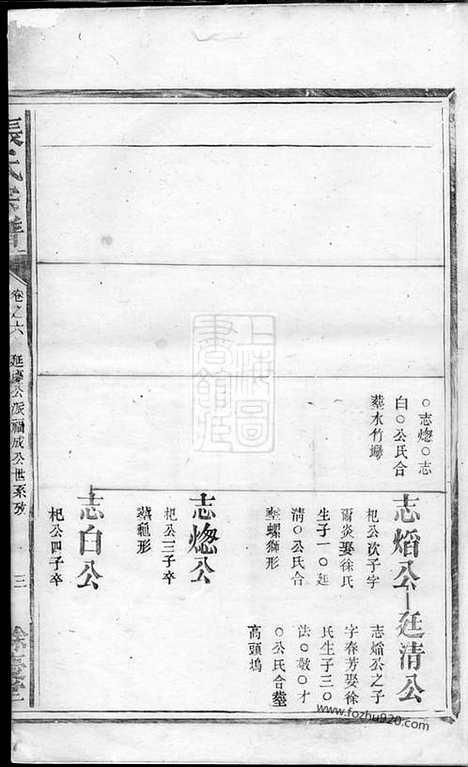 ○志熜○志
白○公氏合
葬水竹塝
志熖公
杞公次子字
爾炎娶徐氏
生子一○廷
清○公氏合
塟螺獅形
廷清公
志熖公之子
字春芳娶徐
氏生子三○
法○敬○才
○公氏合塟
高頭塢
志熜公
杞公三子卒
葬龜形
志白公
杞公四子卒
張氏宗譜
卷之六
延慶公派福成公世系攷
三
上海圖書館藏
www.fozhu920.com